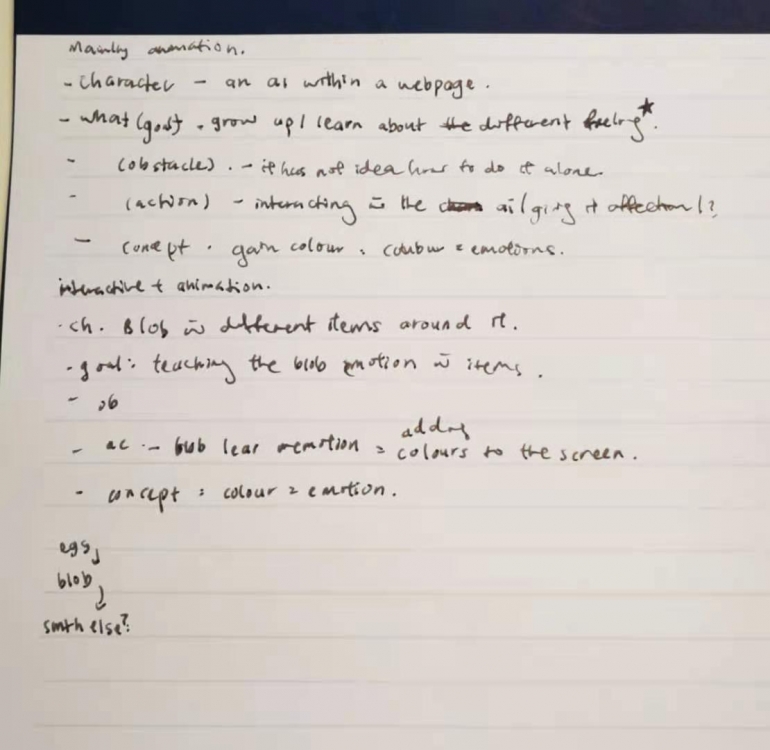 Mainly animation.
- Character - an ai within a webpage.
- what (goal). grow up / learn about the different feeling*.
- (obstacle). - it has not idea how to do it alone.
- (action) - interacting w the ai / giving it affection / ?
- concept. gain colour, colour = emotions.
interactive + animation.
- ch. Blob w different items around it.
- goal: teaching the blob emotion w items.
- ob
adding
- ac. - blob lear emotion = colours to the screen.
- concept = colour = emotion.
egg
blob
smth else?